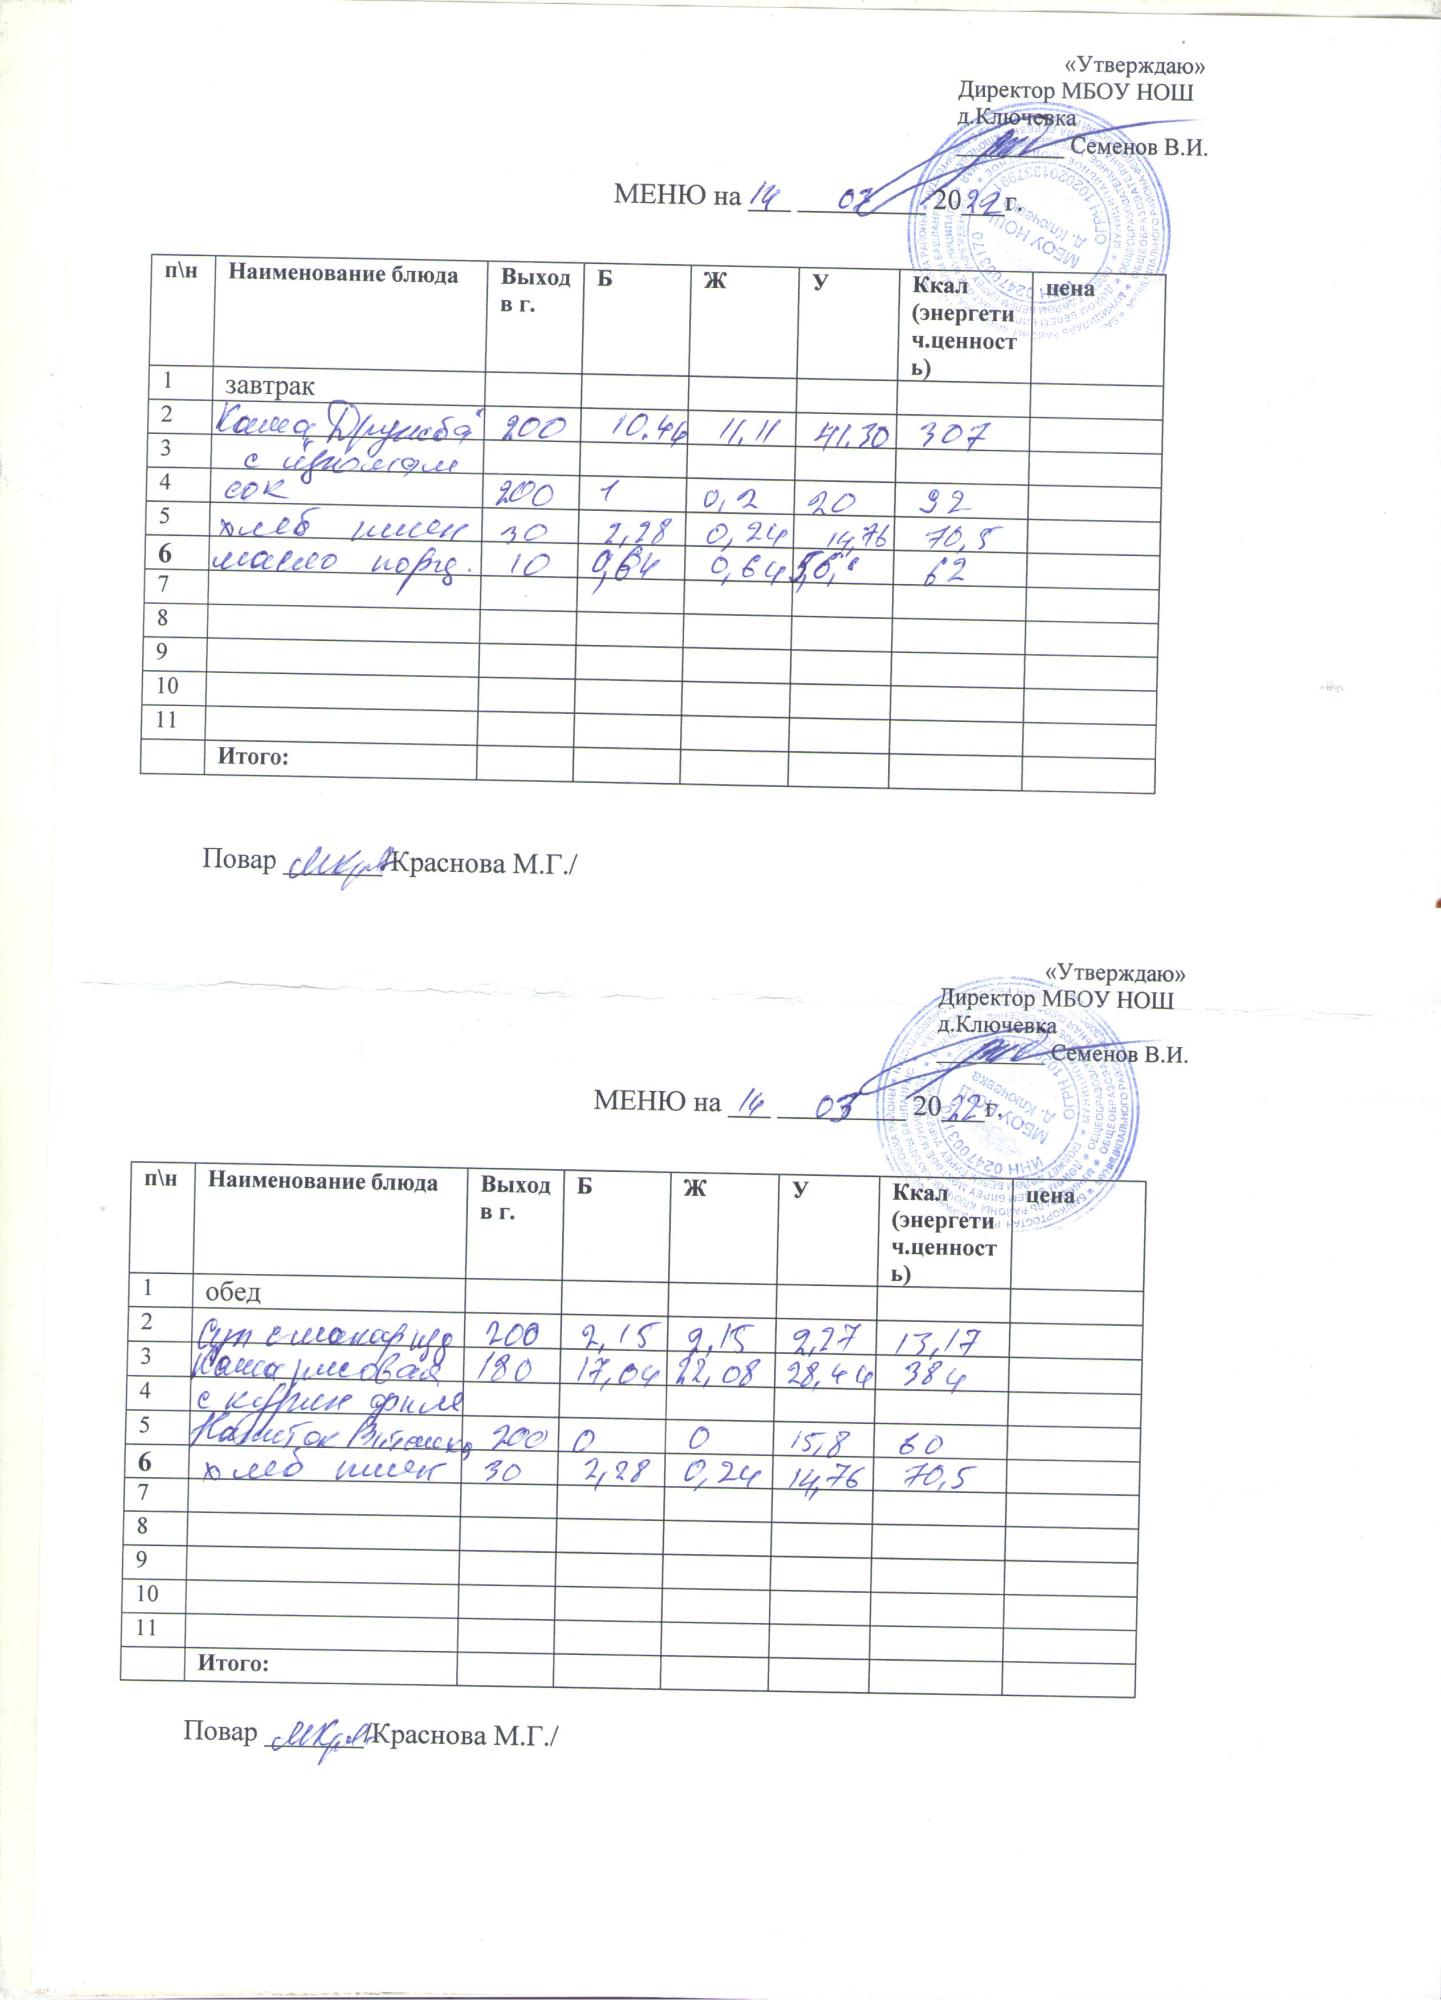 «Утверждаю»
Директор МБОУ НОШ
д.Ключевка
Семенов В.И.
МЕНЮ на 14 03 2022г.
п\н Наименование блюда Выход в г. Б Ж У Ккал (энергетич.ценность) цена
1 завтрак
2 Каша "Дружба" 200 10.44 11,11 41.30 307
3 с изюмом
4 сок 200 1 0,2 20 92
5 хлеб пшен 30 2,28 0,24 14,76 70,5
6 масло порц. 10 0,64 0,64 62
7
8
9
10
11
Итого:
Повар /Краснова М.Г./
«Утверждаю»
Директор МБОУ НОШ
д.Ключевка
Семенов В.И.
МЕНЮ на 14 03 2022г.
п\н Наименование блюда Выход в г. Б Ж У Ккал (энергетич.ценность) цена
1 обед
2 Суп с макар изд 200 2,15 2,15 2,27 13,17
3 Каша рисовая 180 17,04 22,08 28,44 384
4 с курин филе
5 Напиток Витошка 200 0 0 15,8 60
6 хлеб пшен 30 2,28 0,24 14,76 70,5
7
8
9
10
11
Итого:
Повар /Краснова М.Г./